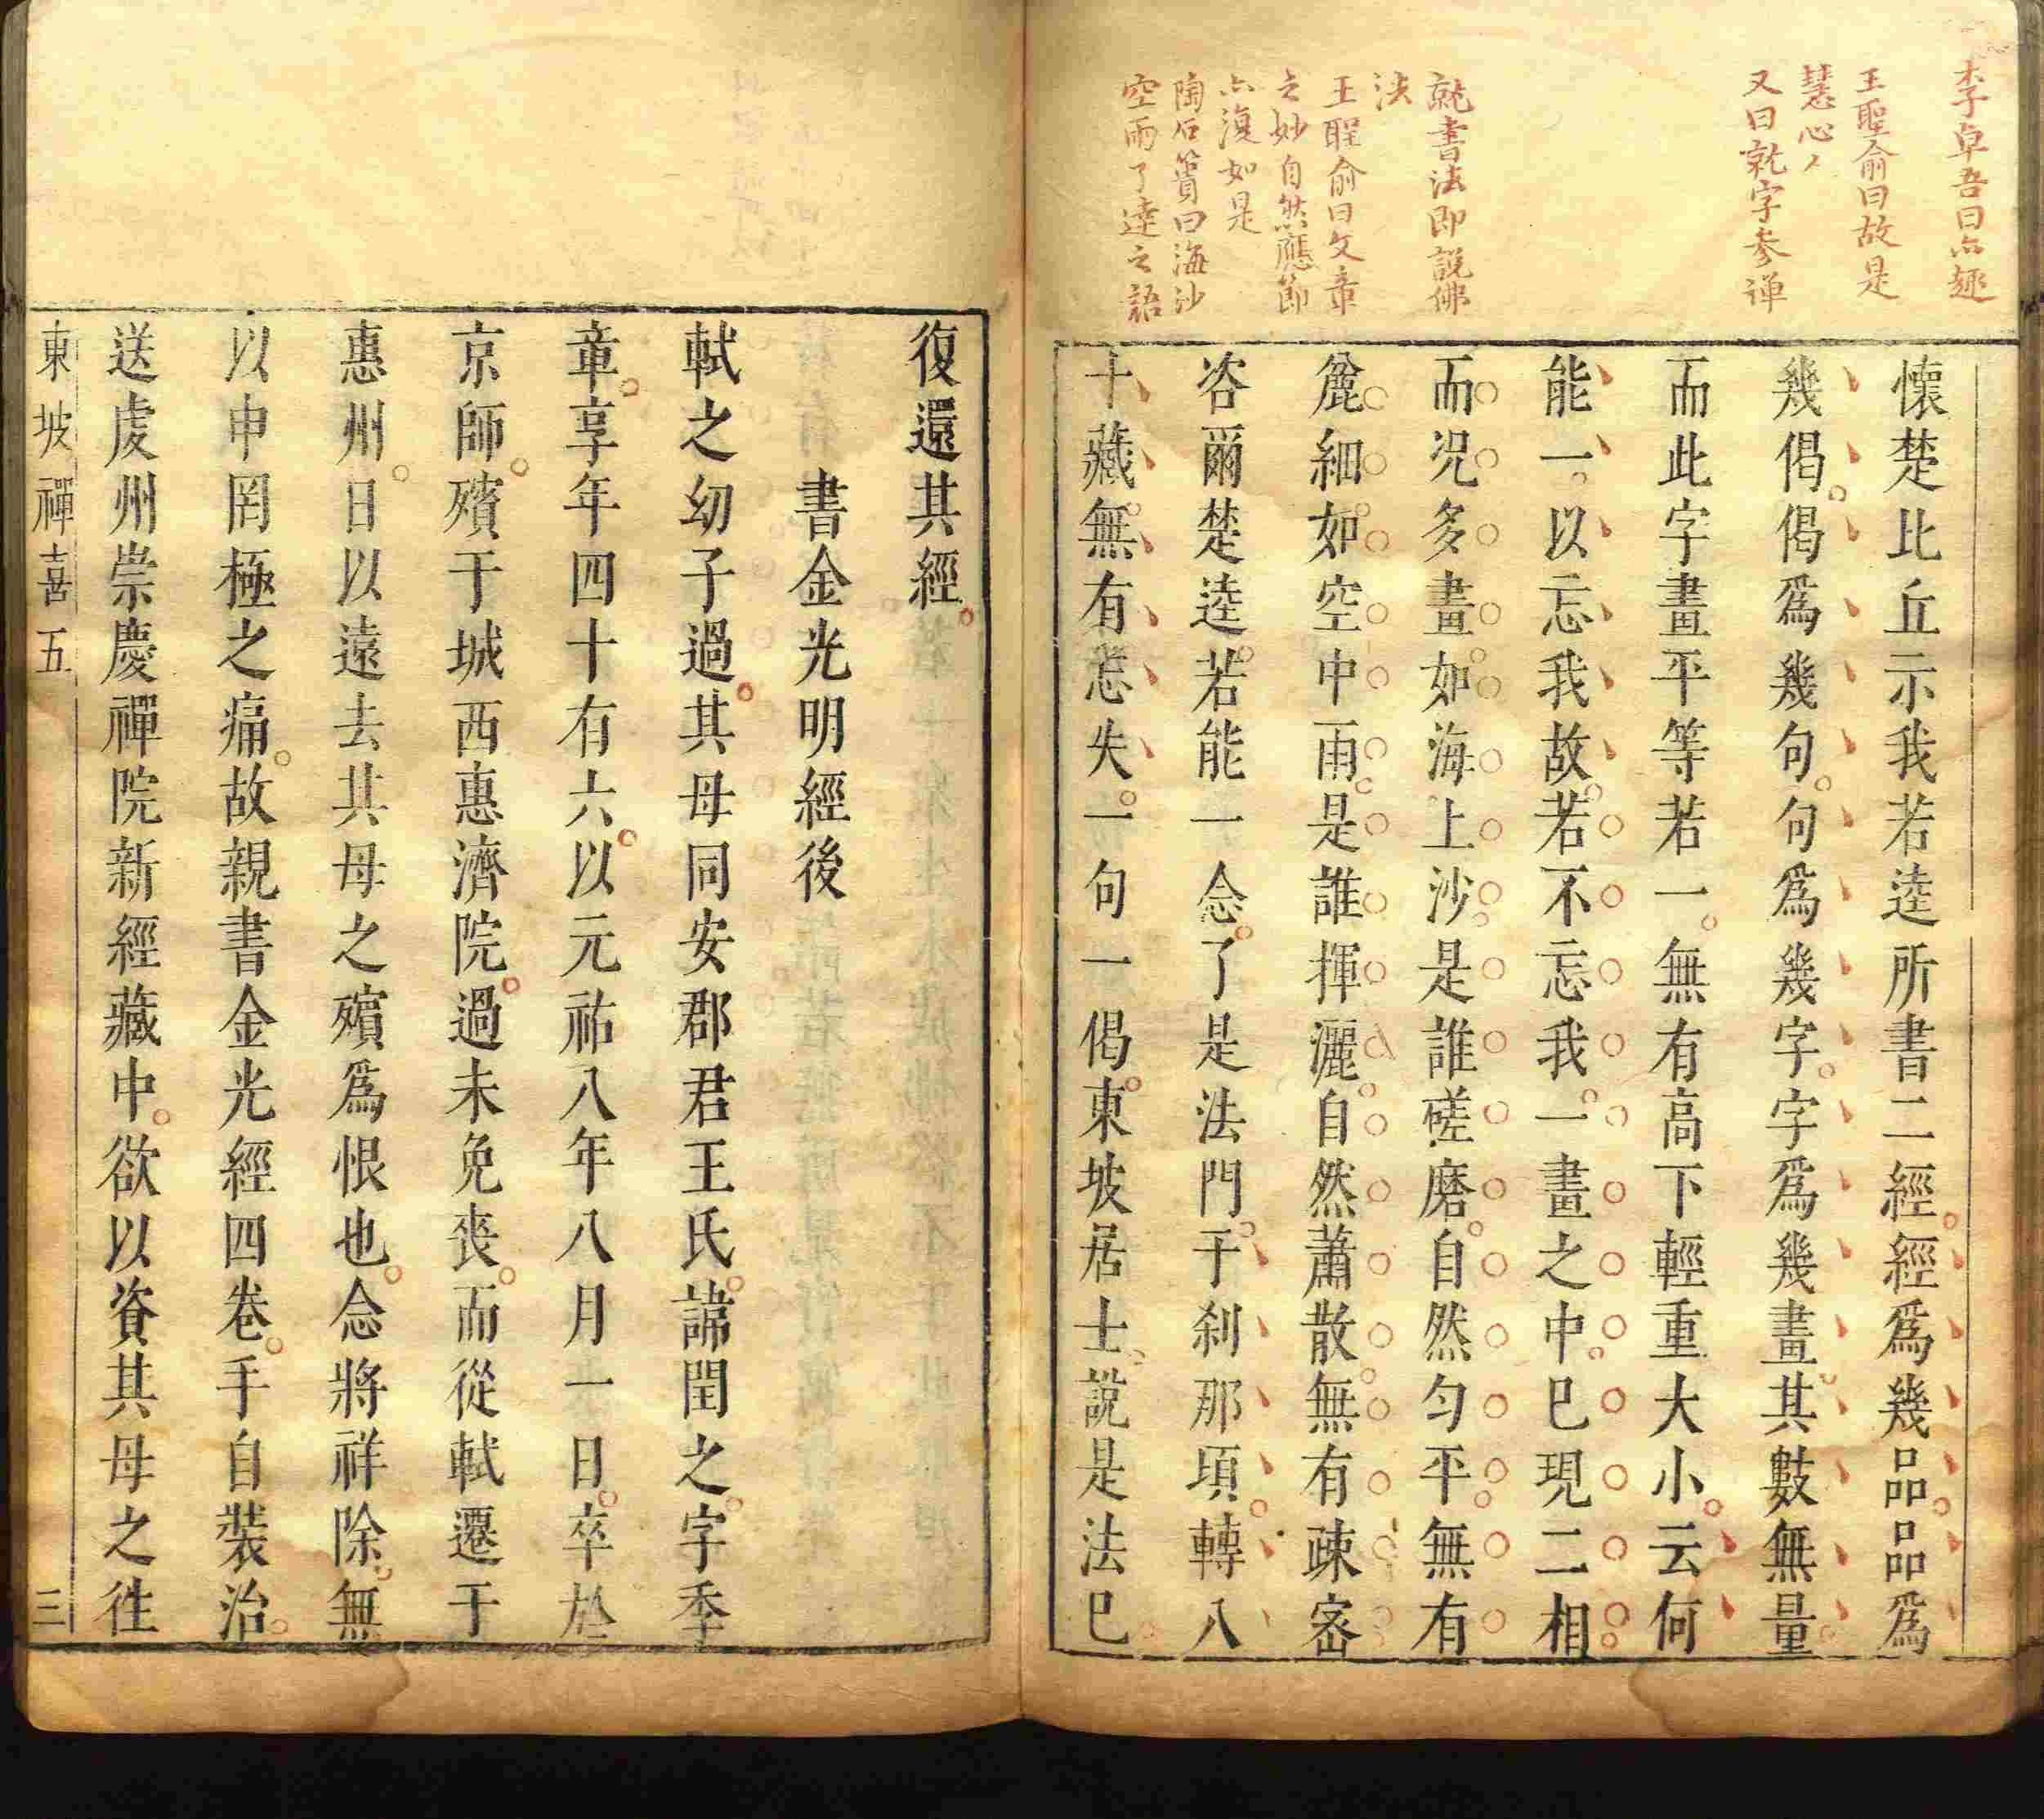 李卓吾曰亦趣
王聖俞曰故是
慧心人
又曰就字參禅
就書法即說佛
法
王聖俞曰文章
之妙自然應節
亦復如是
陶石簣曰海沙
空雨了達之語
懷楚比丘示我若逵所書二經經爲幾品品爲
幾偈偈爲幾句句爲幾字字爲幾畫其數無量
而此字畫平等若一無有高下輕重大小云何
能一以忘我故若不忘我一畫之中已現二相
而况多畫如海上沙是誰磋磨自然匀平無有
麄細如空中雨是誰揮灑自然蕭散無有疎宻
咨爾楚逵若能一念了是法門于刹那頃轉八
十藏無有忘失一句一偈東坡居士說是法已
復還其經
書金光明經後
軾之幼子過其母同安郡君王氏諱閏之字季
章享年四十有六以元祐八年八月一日卒於
京師殯于城西惠濟院過未免喪而從軾遷于
惠州日以遠去其母之殯爲恨也念將祥除無
以申罔極之痛故親書金光經四卷手自裝治
送虔州崇慶禪院新經藏中欲以資其母之徃
東坡禪喜五 三